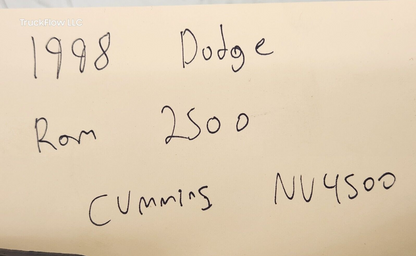 TRUCKFLOW LLC
1998 Dodge
Ram 2500
Cummins NV4500